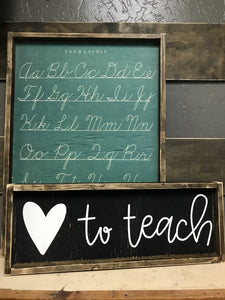 PENMANSHIP
Aa Bb Cc Dd Ee
Ff Gg Hh Ii Jj
Kk Ll Mm Nn
Oo Pp Qq Rr
to teach